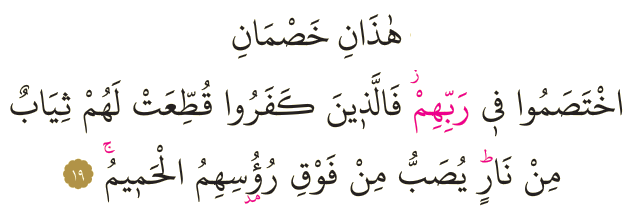 هٰذَانِ خَصْمَانِ
اخْتَصَمُوا فٖي رَبِّهِمْۘ فَالَّذٖينَ كَفَرُوا قُطِّعَتْ لَهُمْ ثِيَابٌ
مِنْ نَارٍؕ يُصَبُّ مِنْ فَوْقِ رُؤُسِهِمُ الْحَمٖيمُۚ ﴿١٩﴾